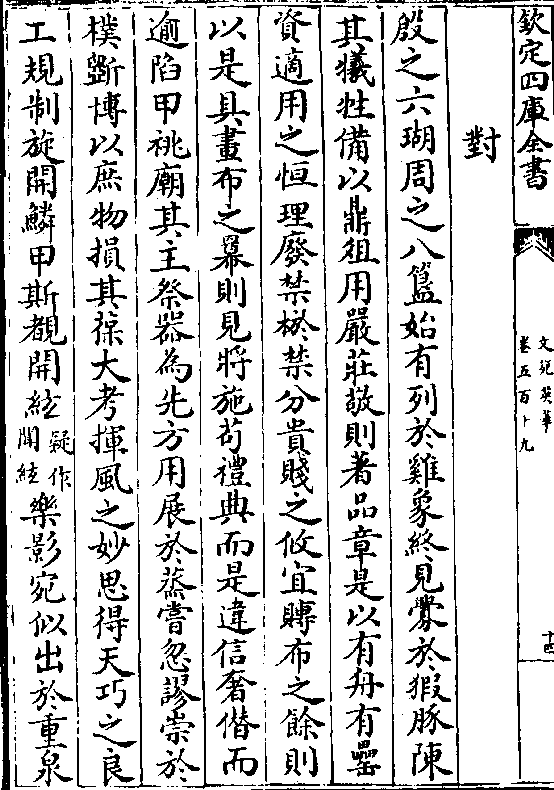 欽定四庫全書
文苑英華
卷五百十九
十四
對
殷之六瑚周之八簋始有列於雞象終見釁於猳豚陳
其犧牲備以鼎俎用嚴莊敬則著品章是以有舟有罍
資適用之恒理廢禁棜禁分貴賤之攸宜疇布之餘則
以是具畫布之冪則見將施苟禮典而是違信奢僭而
逾陷甲祧廟其主祭器為先方用展於蒸嘗忽謬崇於
樸斵博以庶物損其葆大考揮風之妙思得天巧之良
工規制旋開鱗甲斯覩開紘
疑作
聞絃
樂影宛似出於重泉